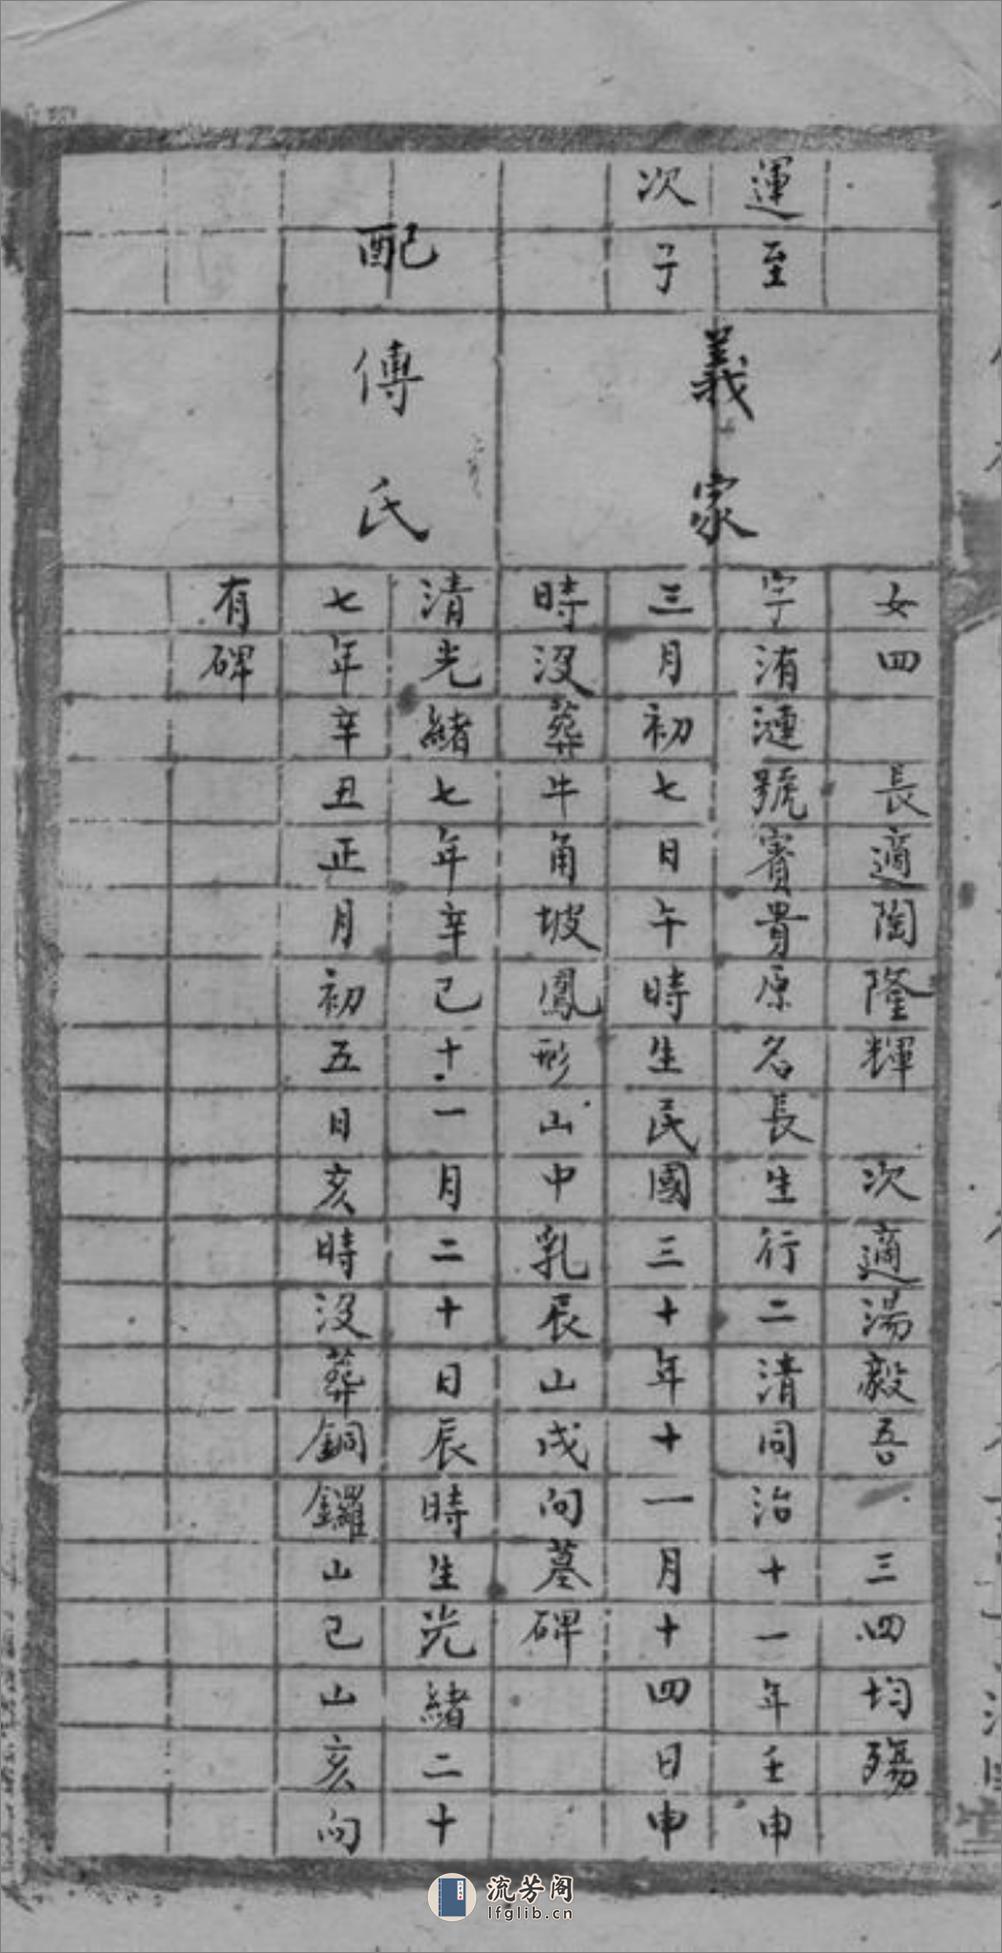 女四 長適陶隆輝 次適湯毅吾 三四均殤
運至
次子
義家
字洧漣號賚貴原名長生行二清同治十一年壬申
三月初七日午時生民國三十年十一月十四日申
時没葬牛角坡鳳形山中乳辰山戌向墓碑
配
傅氏
清光緒七年辛巳十一月二十日辰時生光緒二十
七年辛丑正月初五日亥時没葬銅鑼山巳山亥向
有碑
流芳阁
lfglib.cn